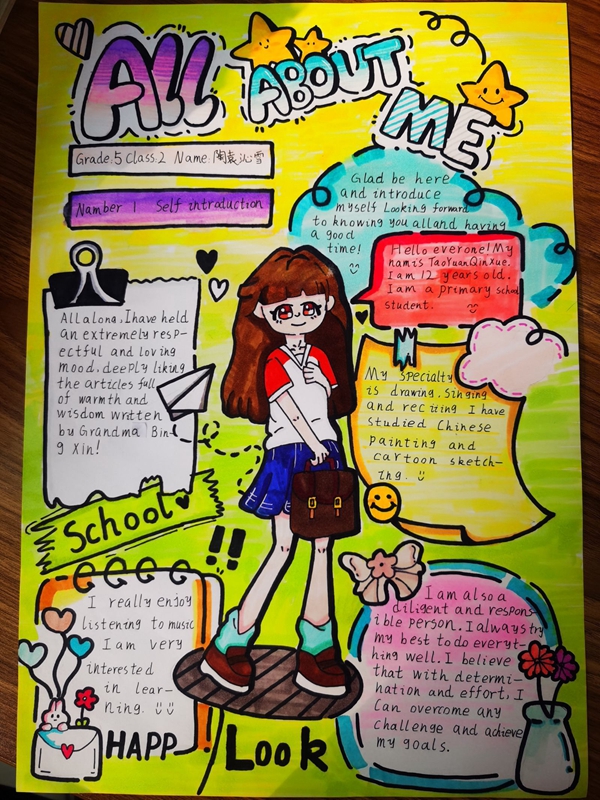 ALL ABOUT ME
Grade:5 Class:2 Name:陶袁沁雪
Namber 1 Self intraduction
Glad be here
and introduce
myself Looking forward
to knowing you alland having
a good
time!
Hello everone! My
namis TaoYuanQinXue.
I am 12 years old.
I am a primary school
student.
Allalona, Ihave held
an extremely resp-
ectful and loving
mood. deeply liking
the articles full
of warmth and
wisdom written
by Grandma Bin-
g Xin!
My specialty
is drawing. Singing
and reciting I have
studied Chinese
painting and
cartoon sketch-
ing.
School
!!
I really enjoy
listening to music
I am very
interested
in lear-
ning.
HAPP
Look
I am also a
diligent and respons-
ible person. I always try
my best to do everyt-
hing well. I believe
that with determi-
nation and effort, I
can overcome any
challenge and achieve
my goals.